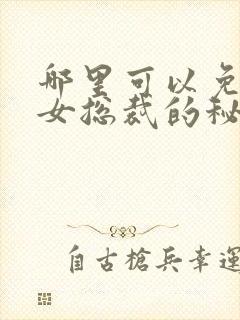 哪里可以免
女总裁的秘
自古槍兵幸運